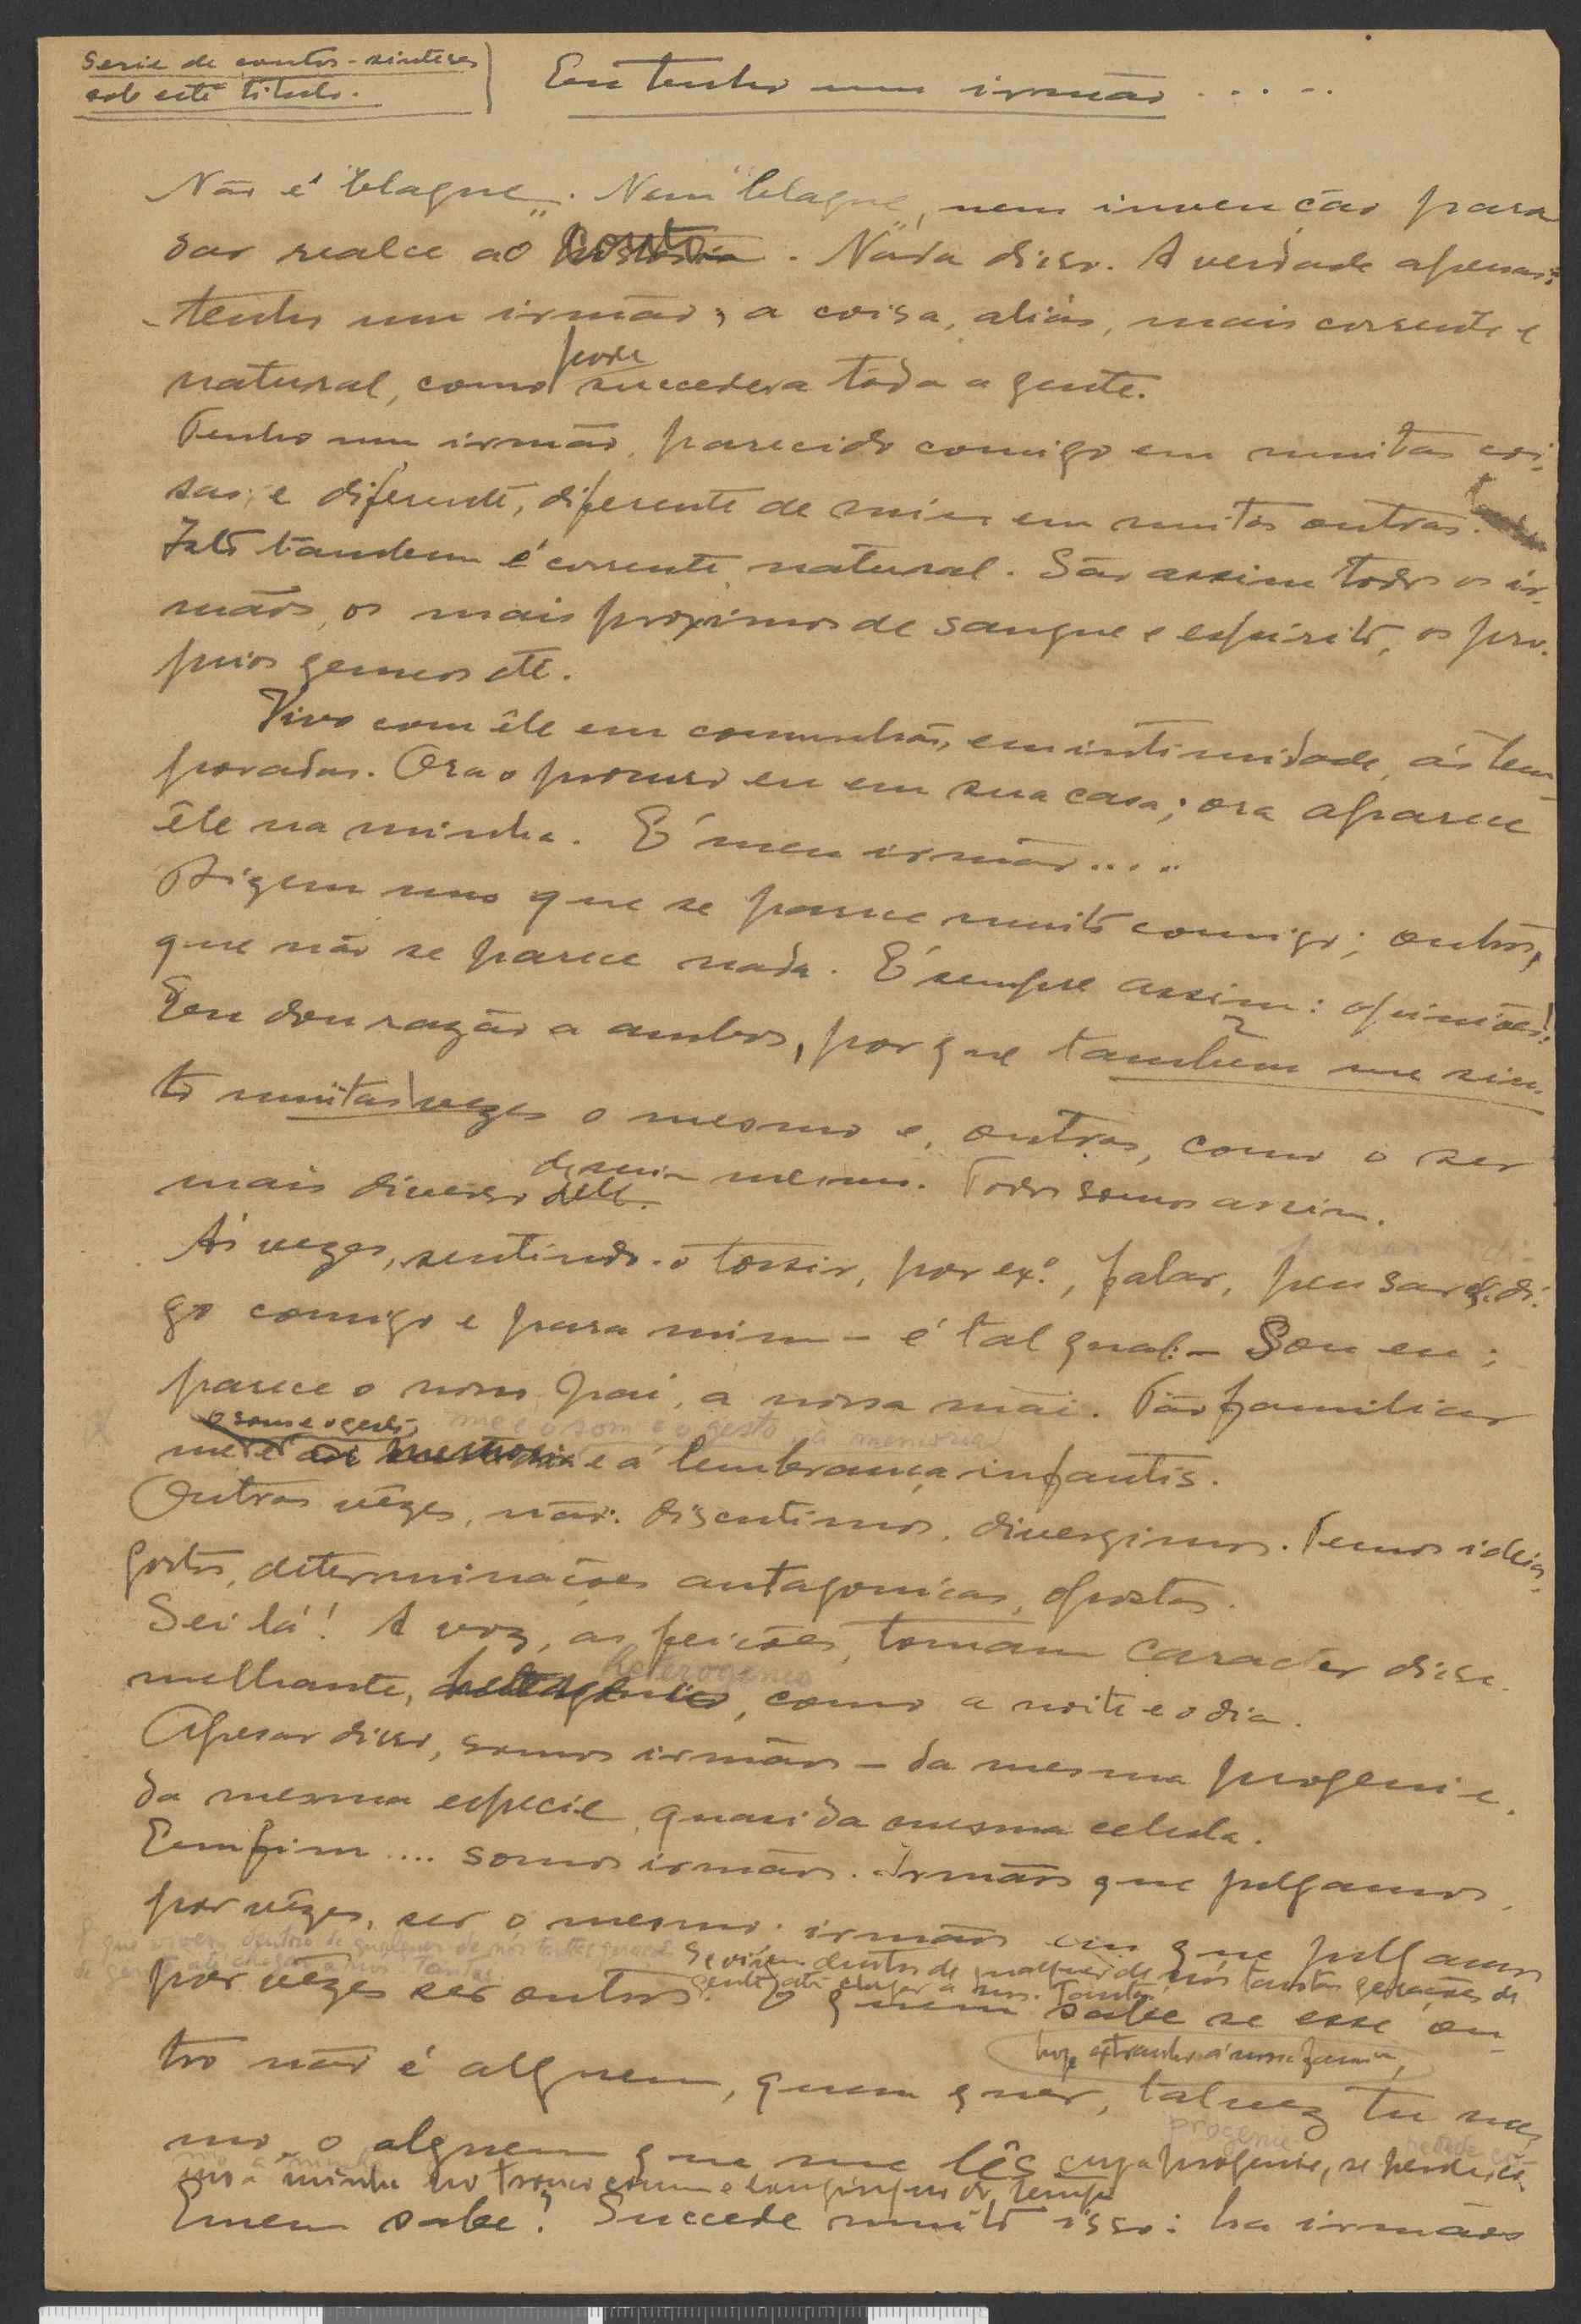 Serie de contos-sinteses
sob este titulo.
Eu tenho um irmão.....
Não é "blague". Nem "blague", nem invenção para
dar realce ao conto. Nada disso. A verdade apenas:
tenho um irmão; a coisa, aliás, mais corrente e
pode
natural, como succeder a toda a gente.
Tenho um irmão, parecido comigo em muitas coi-
sas; e diferente, diferente de mim em muitas outras.
Isto tambem é corrente, natural. São assim todos os ir-
mãos, os mais proximos de sangue e espirito, os pro-
prios gemeos até.
Vivo com êle em comunhão, em intimidade, ás tem-
poradas. Ora o procuro eu em sua casa; ora aparece
êle na minha. É meu irmão....
Dizem uns que se parece muito comigo; outros,
que não se parece nada. É sempre assim: opiniões!
Eu dou razão a ambos, porque tambem me sin-
to muitas vezes o mesmo e, outras, como o ser
de mim mesmo. Todos somos assim.
mais diverso dele.
Ás vezes, sentindo-o tossir, por ex.º, falar, pensar, di-
go comigo e para mim - é tal qual: - Sou eu;
parece o nosso Pai, a nossa mãi. Tão familiar
o som e o gesto, me é o som e o gesto a memoria
me é e a lembrança infantis.
Outras vêzes, não: discutimos, divergimos. Temos ideias,
gostos, determinações antagonicas, opostas.
Sei lá! A voz, as feições, tomam caracter disse-
heterogeneo
melhante, como a noite e o dia.
Apesar disso, somos irmãos - da mesma progenie,
da mesma especie, quasi da mesma celula.
Emfim.... somos irmãos. Irmãos que julgamos,
por vêzes, ser o mesmo; irmãos em que julgamos
que vivem dentro de qualquer de nós tantas gerações
Se vivem dentro de qualquer de nós tantas gerações de
de gente até chegar a nós tantas
gente até chegar a nós. Tantas
por vêzes ser outros. quem sabe se esse ou-
hoje extranho á nossa familia,
tro não é alguem, quem quer, talvez tu mes-
progenie
mo, o alguem que me lês cuja progenie, se perde co-
mo a minha no tronco comum e longinquo do tempo
Quem sabe? Succede muito isso: ha irmãos